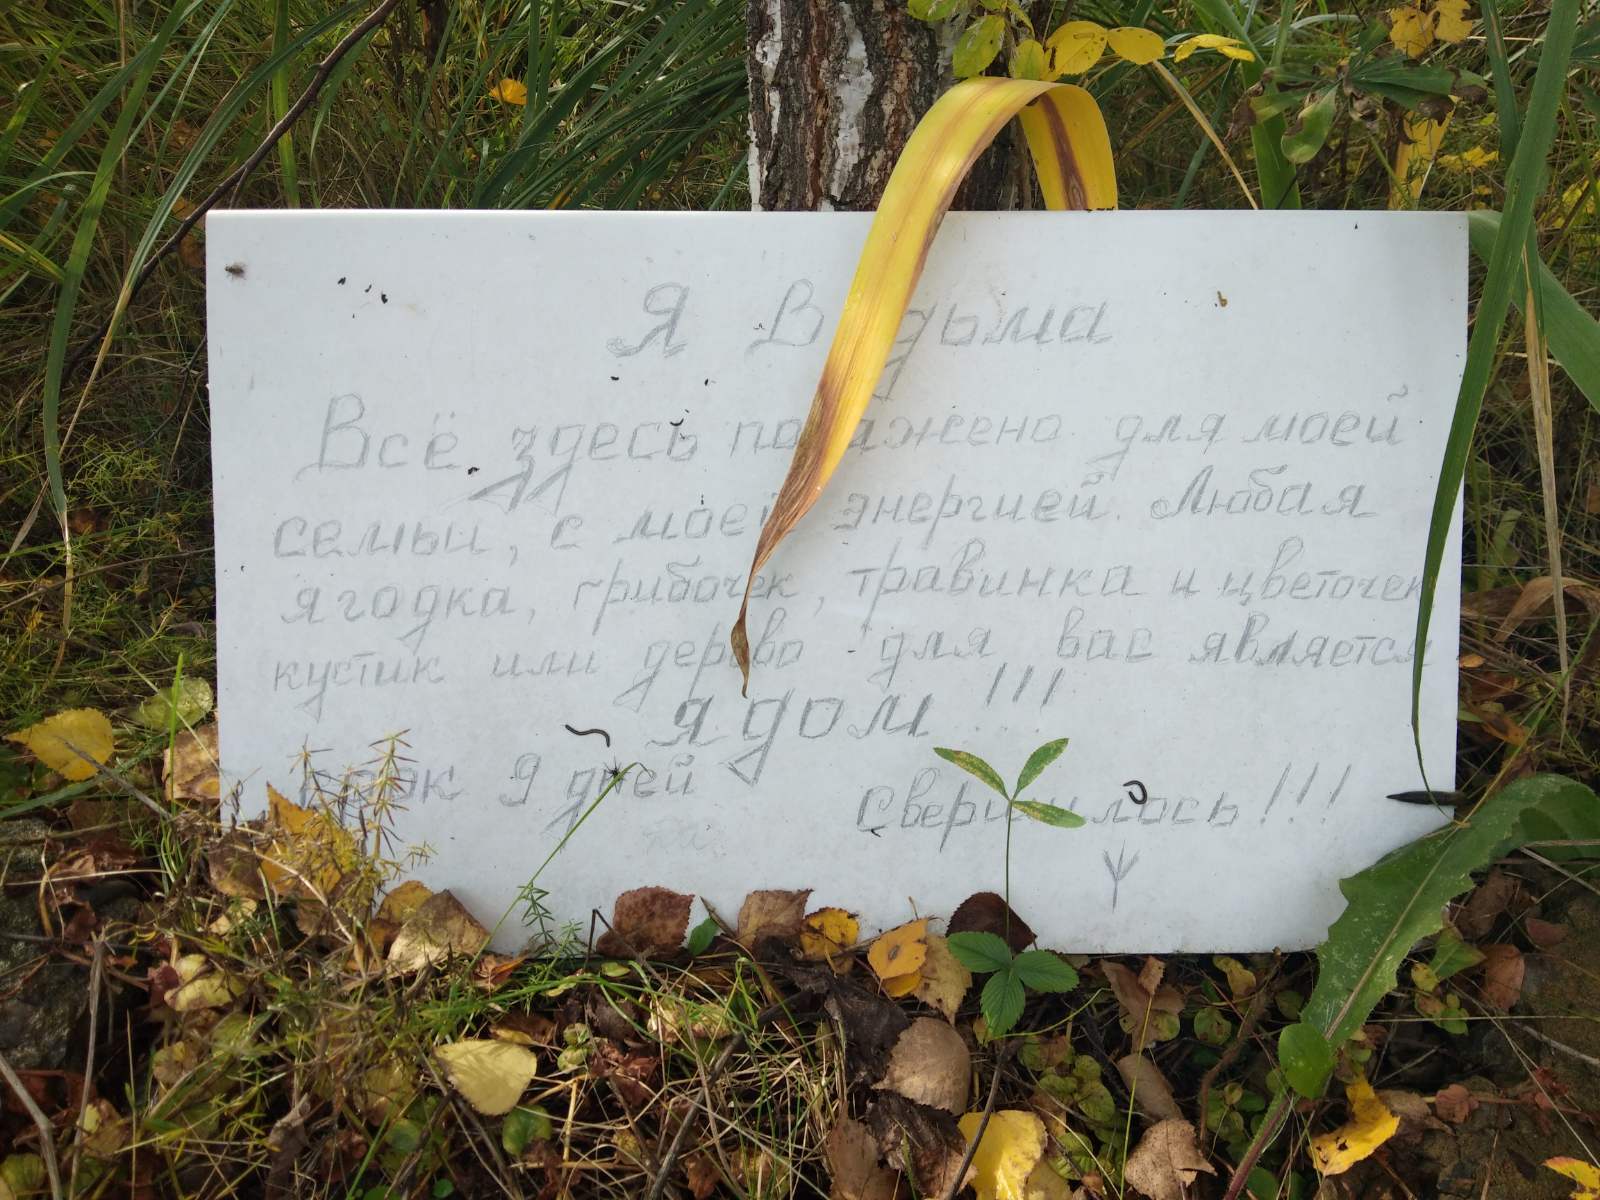 Я Ведьма
Всё здесь посажено для моей
семьи, с моей энергией. Любая
ягодка, грибочек, травинка и цветочек
кустик или дерево для вас является
ядом!!!
срок 9 дней
Свершилось!!!